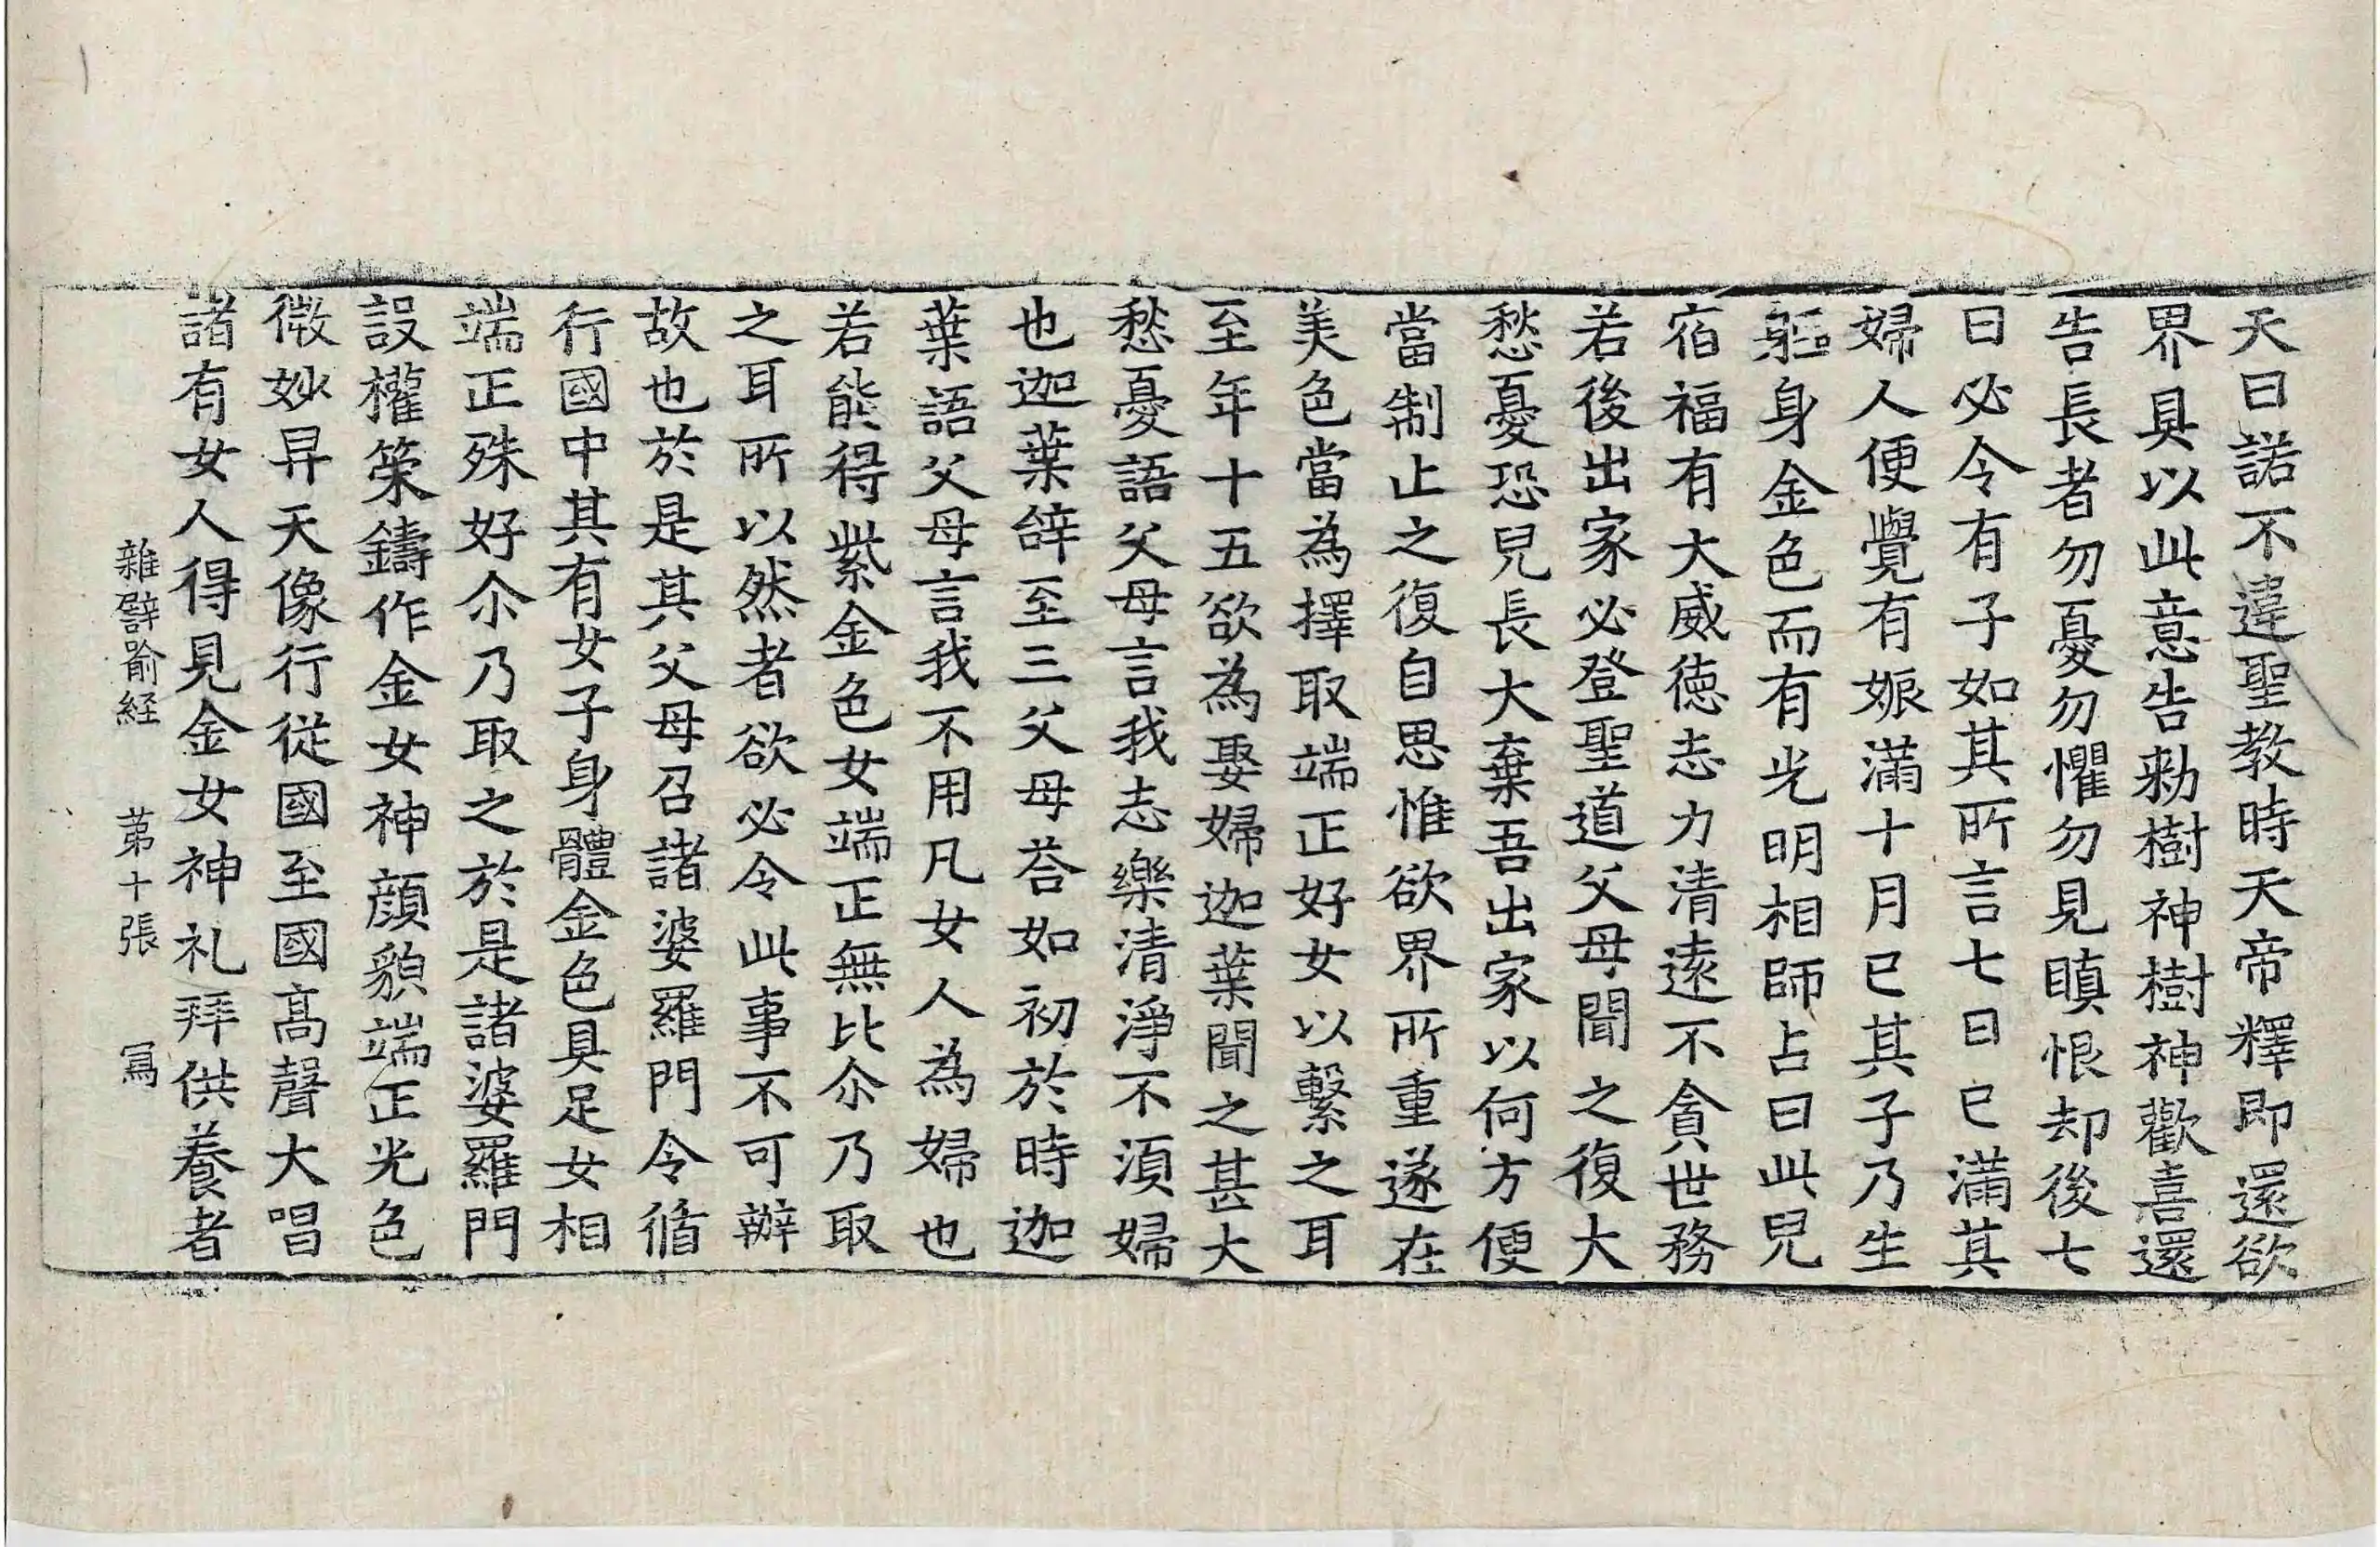 天曰諾不違聖教時天帝釋即還欲
界具以此意告勑樹神樹神歡喜還
告長者勿憂勿懼勿見瞋恨却後七
日必令有子如其所言七日已滿其
婦人便覺有娠滿十月已其子乃生
軀身金色而有光明相師占曰此兒
宿福有大威德志力清遠不貪世務
若後出家必登聖道父母聞之復大
愁憂恐兒長大棄吾出家以何方便
當制止之復自思惟欲界所重遂在
美色當為擇取端正好女以繫之耳
至年十五欲為娶婦迦葉聞之甚大
愁憂語父母言我志樂清淨不湏婦
也迦葉辝至三父母荅如初於時迦
葉語父母言我不用凡女人為婦也
若能得紫金色女端正無比尒乃取
之耳所以然者欲必令此事不可辦
故也於是其父母召諸婆羅門令循
行國中其有女子身體金色具足女相
端正殊好尒乃取之於是諸婆羅門
設權策鑄作金女神顔貌端正光色
微妙昇天像行從國至國髙聲大唱
諸有女人得見金女神礼拜供養者
雜譬喻経 苐十張 冩